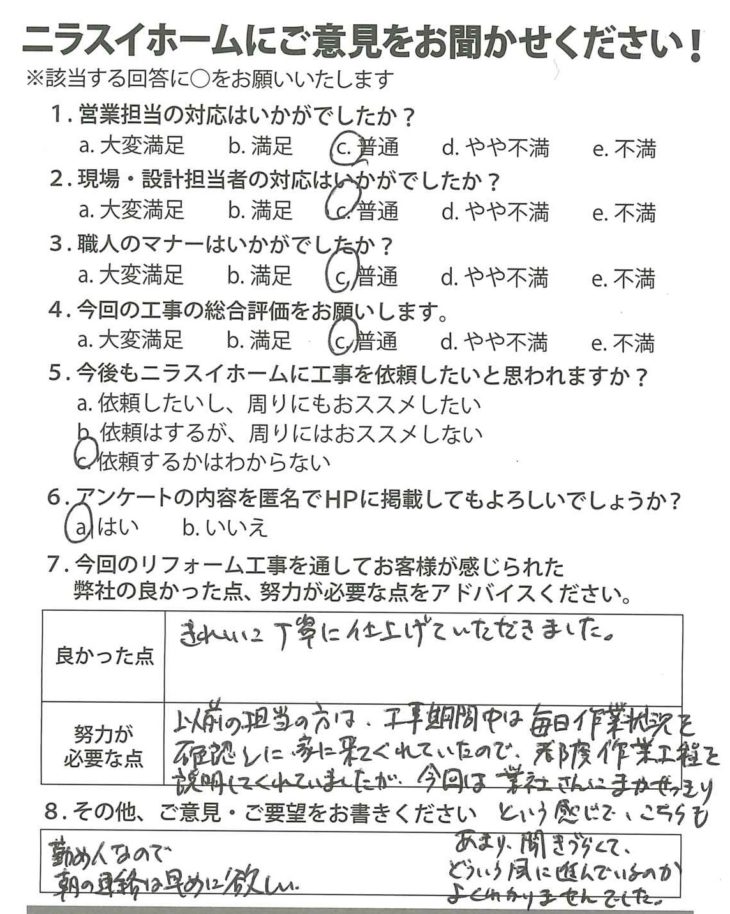 ニラスイホームにご意見をお聞かせください！
※該当する回答に○をお願いいたします
1．営業担当の対応はいかがでしたか？
a. 大変満足 b. 満足 c. 普通 d. やや不満 e. 不満
2．現場・設計担当者の対応はいかがでしたか？
a. 大変満足 b. 満足 c. 普通 d. やや不満 e. 不満
3．職人のマナーはいかがでしたか？
a. 大変満足 b. 満足 c. 普通 d. やや不満 e. 不満
4．今回の工事の総合評価をお願いします。
a. 大変満足 b. 満足 c. 普通 d. やや不満 e. 不満
5．今後もニラスイホームに工事を依頼したいと思われますか？
a. 依頼したいし、周りにもおススメしたい
b. 依頼はするが、周りにはおススメしない
c. 依頼するかはわからない
6．アンケートの内容を匿名でHPに掲載してもよろしいでしょうか？
a. はい b. いいえ
7．今回のリフォーム工事を通してお客様が感じられた
弊社の良かった点、努力が必要な点をアドバイスください。
良かった点
きれいに丁寧に仕上げていただきました。
努力が
必要な点
以前の担当の方は、工事期間中は毎日作業状況を
確認しに家に来てくれていたので、都度作業工程を
説明してくれていましたが、今回は業社さんにまかせっきり
という感じで、こちらも
あまり、聞きづらくて、
どういう風に進んでいるのか
よくわかりませんでした。
8．その他、ご意見・ご要望をお書きください
勤め人なので
朝の連絡は早めに欲しい